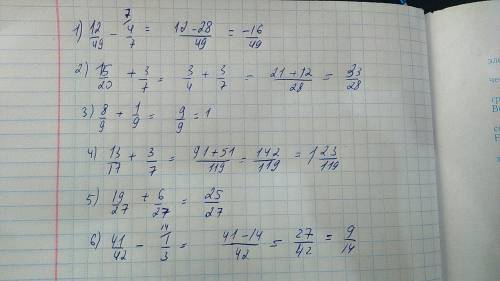 1) 12/49 - 4/7 ⁷ = 12-28/49 = -16/49
2) 15/20 + 3/7 = 3/4 + 3/7 = 21+12/28 = 33/28
3) 8/9 + 1/9 = 9/9 = 1
4) 13/17 + 3/7 = 91+51/119 = 142/119 = 1 23/119
5) 19/27 + 6/27 = 25/27
6) 41/42 - 1/3 ¹⁴ = 41-14/42 = 27/42 = 9/14